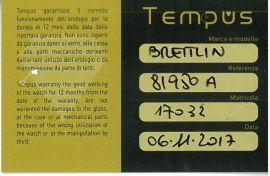 Tempus garantisce il corretto
funzionamento dell'orologio per la
durata di 12 mesi dalla data della
riportata garanzia. Non sono coperti
da garanzia danni al vetro, alla cassa
o alle parti meccaniche derivanti
dall'errato utilizzo dell'orologio o da
manomissione da parte di terzi.
Tempus warranty the good working
of the watch for 12 months from the
date of the waranty. Are not
warranted the damages to the glass,
at the case or at mechanical parts
because of the wrong utilization of
the watch or at the manipulation by
third.
Tempus
Marca e modello
BREITLIN
Referenza
81950 A
Matricola
17032
Data
06.11.2017